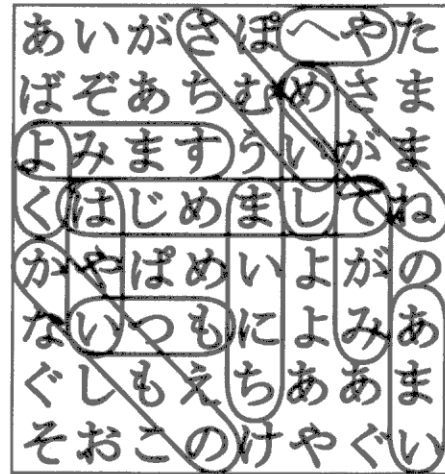 あいがさぽへやた
ばぞあちむめさま
よみますういがま
くはじめましてね
かやぱめいよがの
ないつもによみあ
ぐしもえちああま
そおこのけやぐい